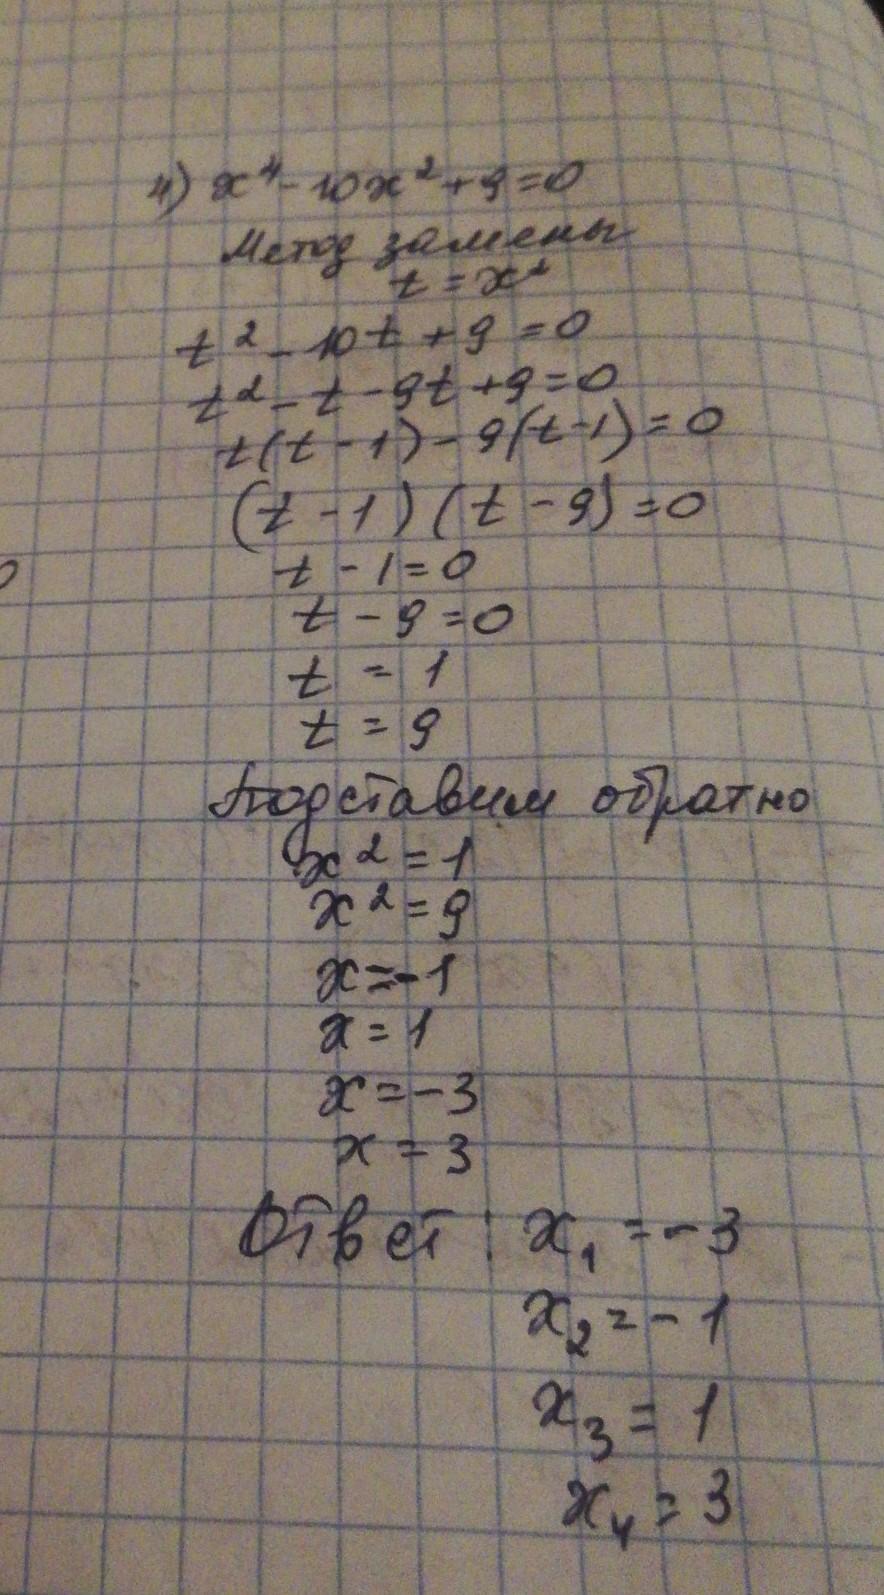 4) x⁴ - 10x² + 9 = 0
Метод замены
t = x²
t² - 10t + 9 = 0
t² - t - 9t + 9 = 0
t(t - 1) - 9(t - 1) = 0
(t - 1) (t - 9) = 0
t - 1 = 0
t - 9 = 0
t = 1
t = 9
Подставим обратно
x² = 1
x² = 9
x = -1
x = 1
x = -3
x = 3
Ответ: x₁ = -3
x₂ = -1
x₃ = 1
x₄ = 3